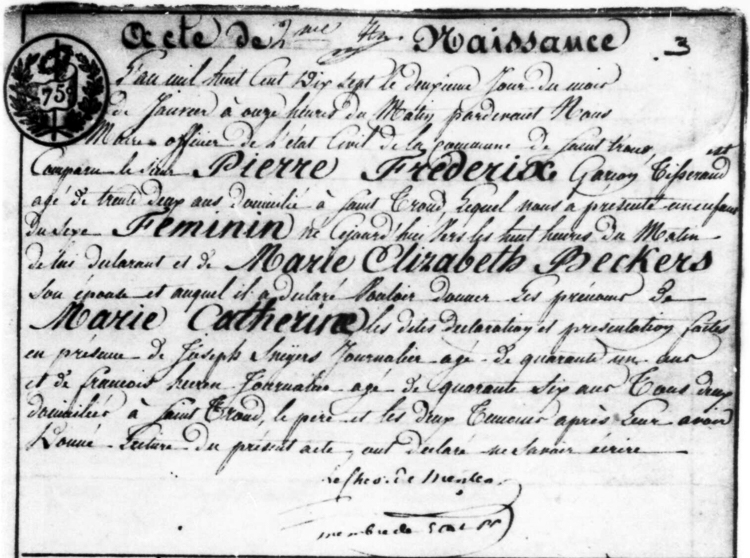 Acte de 2me Naissance 3
75
L'an mil huit Cent Dix Sept le deuxieme Jour du mois
de Janvier à onze heures du Matin pardevant Nous
Maire officier de L'état Civil de la Commune de Saint trond, est
Comparu le Sieur Pierre Frederix Garçon Tisserand
agé de trente deux ans domicilié à Saint Trond, Lequel nous à présenté un enfant
Du Sexe Feminin né Cejourd'hui Vers les huit heures Du Matin
de lui declarant et de Marie Elizabeth Beckers
Son épouse et auquel il a declaré Vouloir donner Les prénoms de
Marie Catherine les dites declaration et presentation faites
en présence de Joseph Sneyers Journalier agé de quarante un ans
et de francois Journalier agé de quarante Six ans Tous deux
domiciliés à Saint Trond, le père et les deux Temoins après Leur avoir
Donné Lecture du présent acte, ont declaré ne Savoir écrire
le Chev. de
membre de